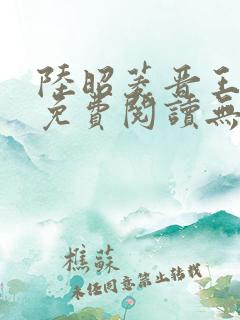 陸昭菱晋王
免費閱讀無
樵蘇
未經同意禁止轉載